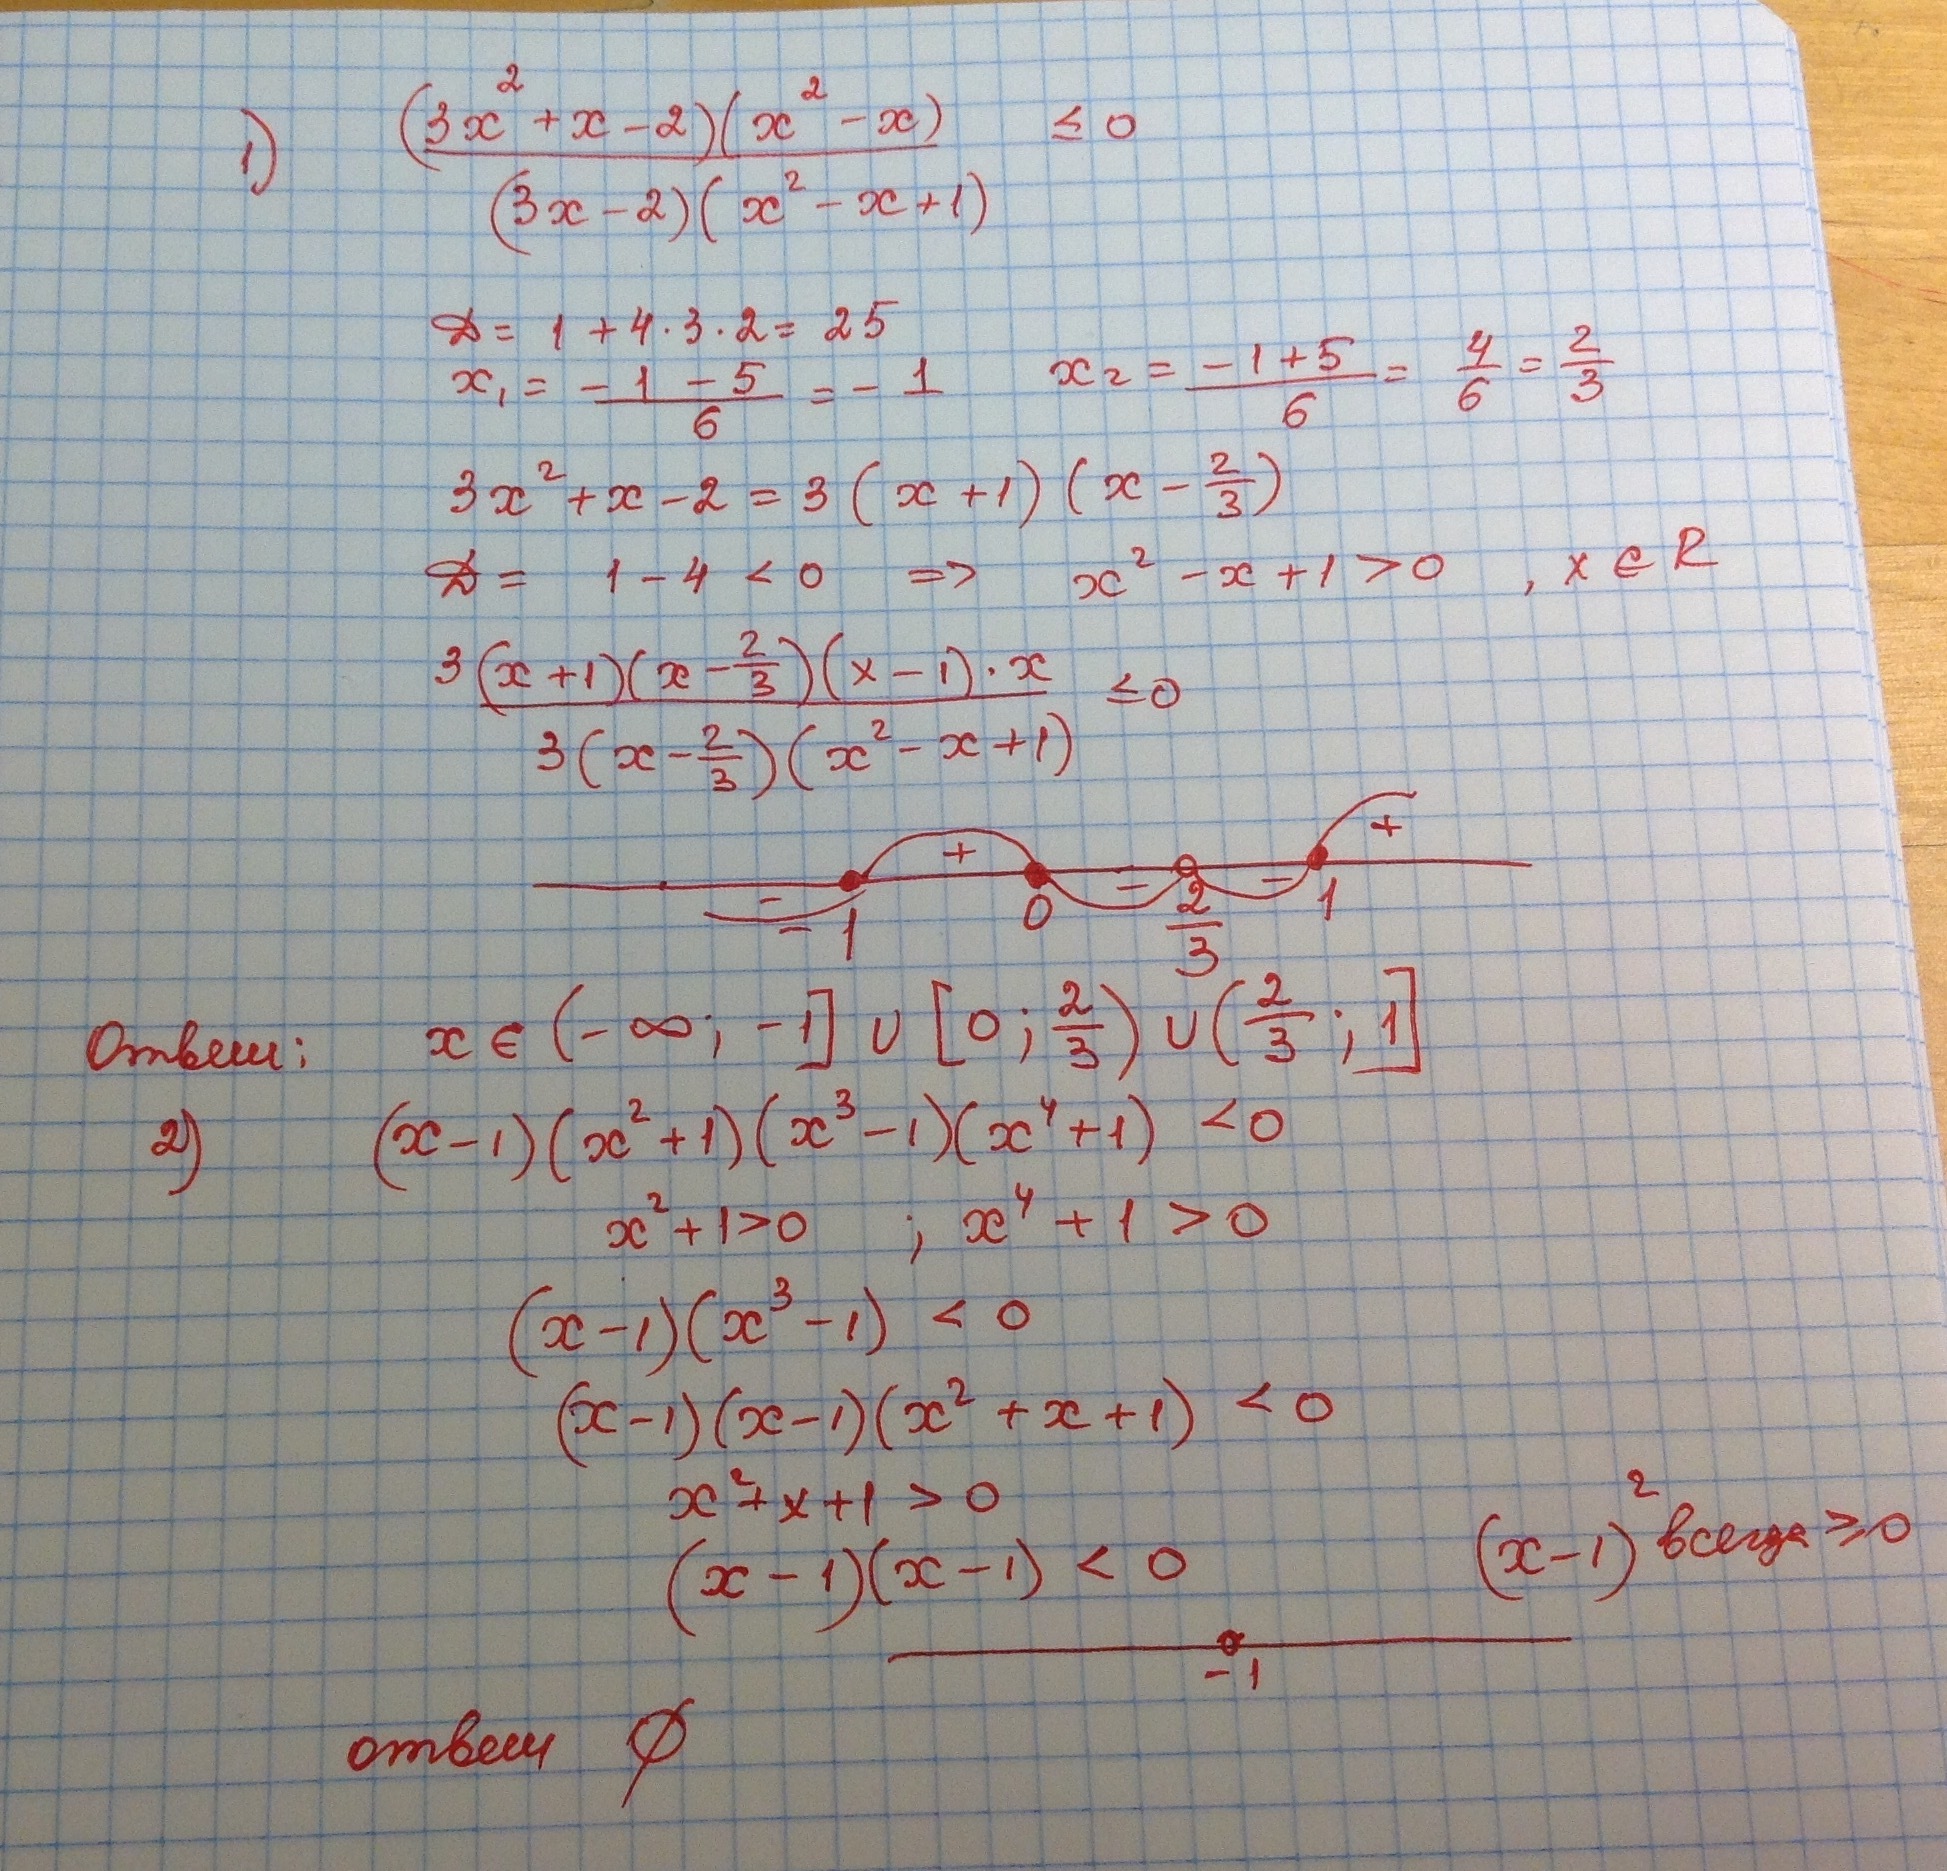 1) (3x² + x - 2)(x² - x) / (3x - 2)(x² - x + 1) ≤ 0
D = 1 + 4·3·2 = 25
x₁ = (-1 - 5)/6 = -1 x₂ = (-1 + 5)/6 = 4/6 = 2/3
3x² + x - 2 = 3(x + 1)(x - 2/3)
D = 1 - 4 < 0 => x² - x + 1 > 0 , x ∈ R
3(x + 1)(x - 2/3)(x - 1)·x / 3(x - 2/3)(x² - x + 1) ≤ 0
- + - - +
-1 0 2/3 1
Ответ: x ∈ (-∞; -1] ∪ [0; 2/3) ∪ (2/3; 1]
2) (x - 1)(x² + 1)(x³ - 1)(x⁴ + 1) < 0
x² + 1 > 0 ; x⁴ + 1 > 0
(x - 1)(x³ - 1) < 0
(x - 1)(x - 1)(x² + x + 1) < 0
x² + x + 1 > 0
(x - 1)(x - 1) < 0 (x - 1)² всегда ≥ 0
-1
ответ ∅